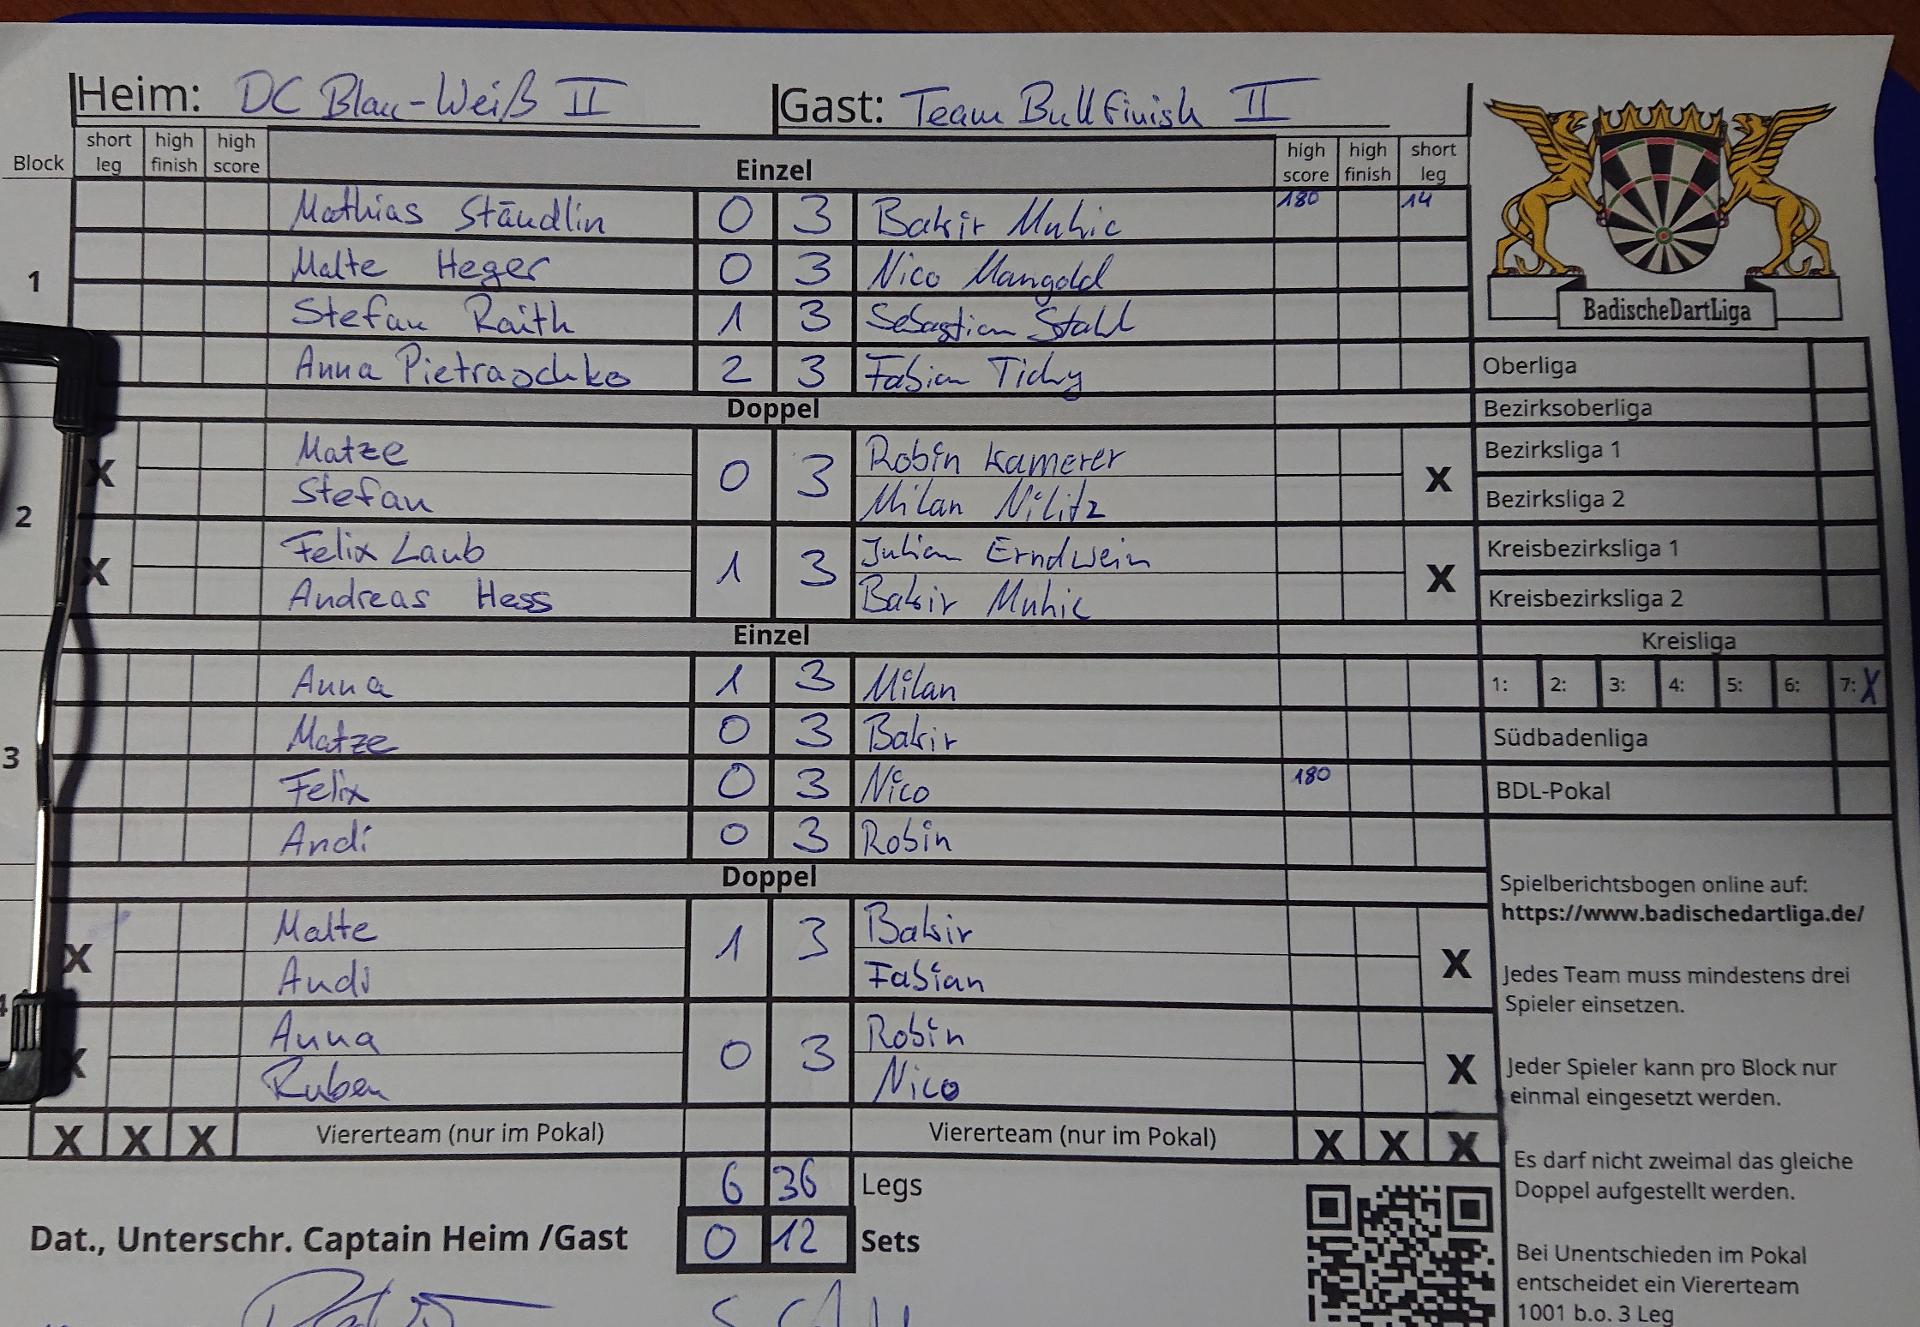 Heim: DC Blau-Weiß II Gast: Team Bullfinish II
Block short leg high finish high score Einzel high score high finish short leg
1
Mathias Ständlin 0 3 Bakir Muhic 180 14
Malte Heger 0 3 Nico Mangold
Stefan Raith 1 3 Sebastian Stahl
Anna Pietraschko 2 3 Fabian Tichy
Doppel
2
X Matze 0 3 Robin Kamerer X
Stefan Milan Nilitz
X Felix Laub 1 3 Julian Erndwein X
Andreas Hess Bakir Muhic
Einzel
3
Anna 1 3 Milan
Matze 0 3 Bakir
Felix 0 3 Nico 180
Andi 0 3 Robin
Doppel
4
X Malte 1 3 Bakir X
Andi Fabian
X Anna 0 3 Robin X
Ruben Nico
X X X Viererteam (nur im Pokal) Viererteam (nur im Pokal) X X X
6 36 Legs
0 12 Sets
Dat., Unterschr. Captain Heim /Gast
BadischeDartLiga
Oberliga
Bezirksoberliga
Bezirksliga 1
Bezirksliga 2
Kreisbezirksliga 1
Kreisbezirksliga 2
Kreisliga
1: 2: 3: 4: 5: 6: 7: X
Südbadenliga
BDL-Pokal
Spielberichtsbogen online auf:
https://www.badischedartliga.de/
Jedes Team muss mindestens drei
Spieler einsetzen.
Jeder Spieler kann pro Block nur
einmal eingesetzt werden.
Es darf nicht zweimal das gleiche
Doppel aufgestellt werden.
Bei Unentschieden im Pokal
entscheidet ein Viererteam
1001 b.o. 3 Leg